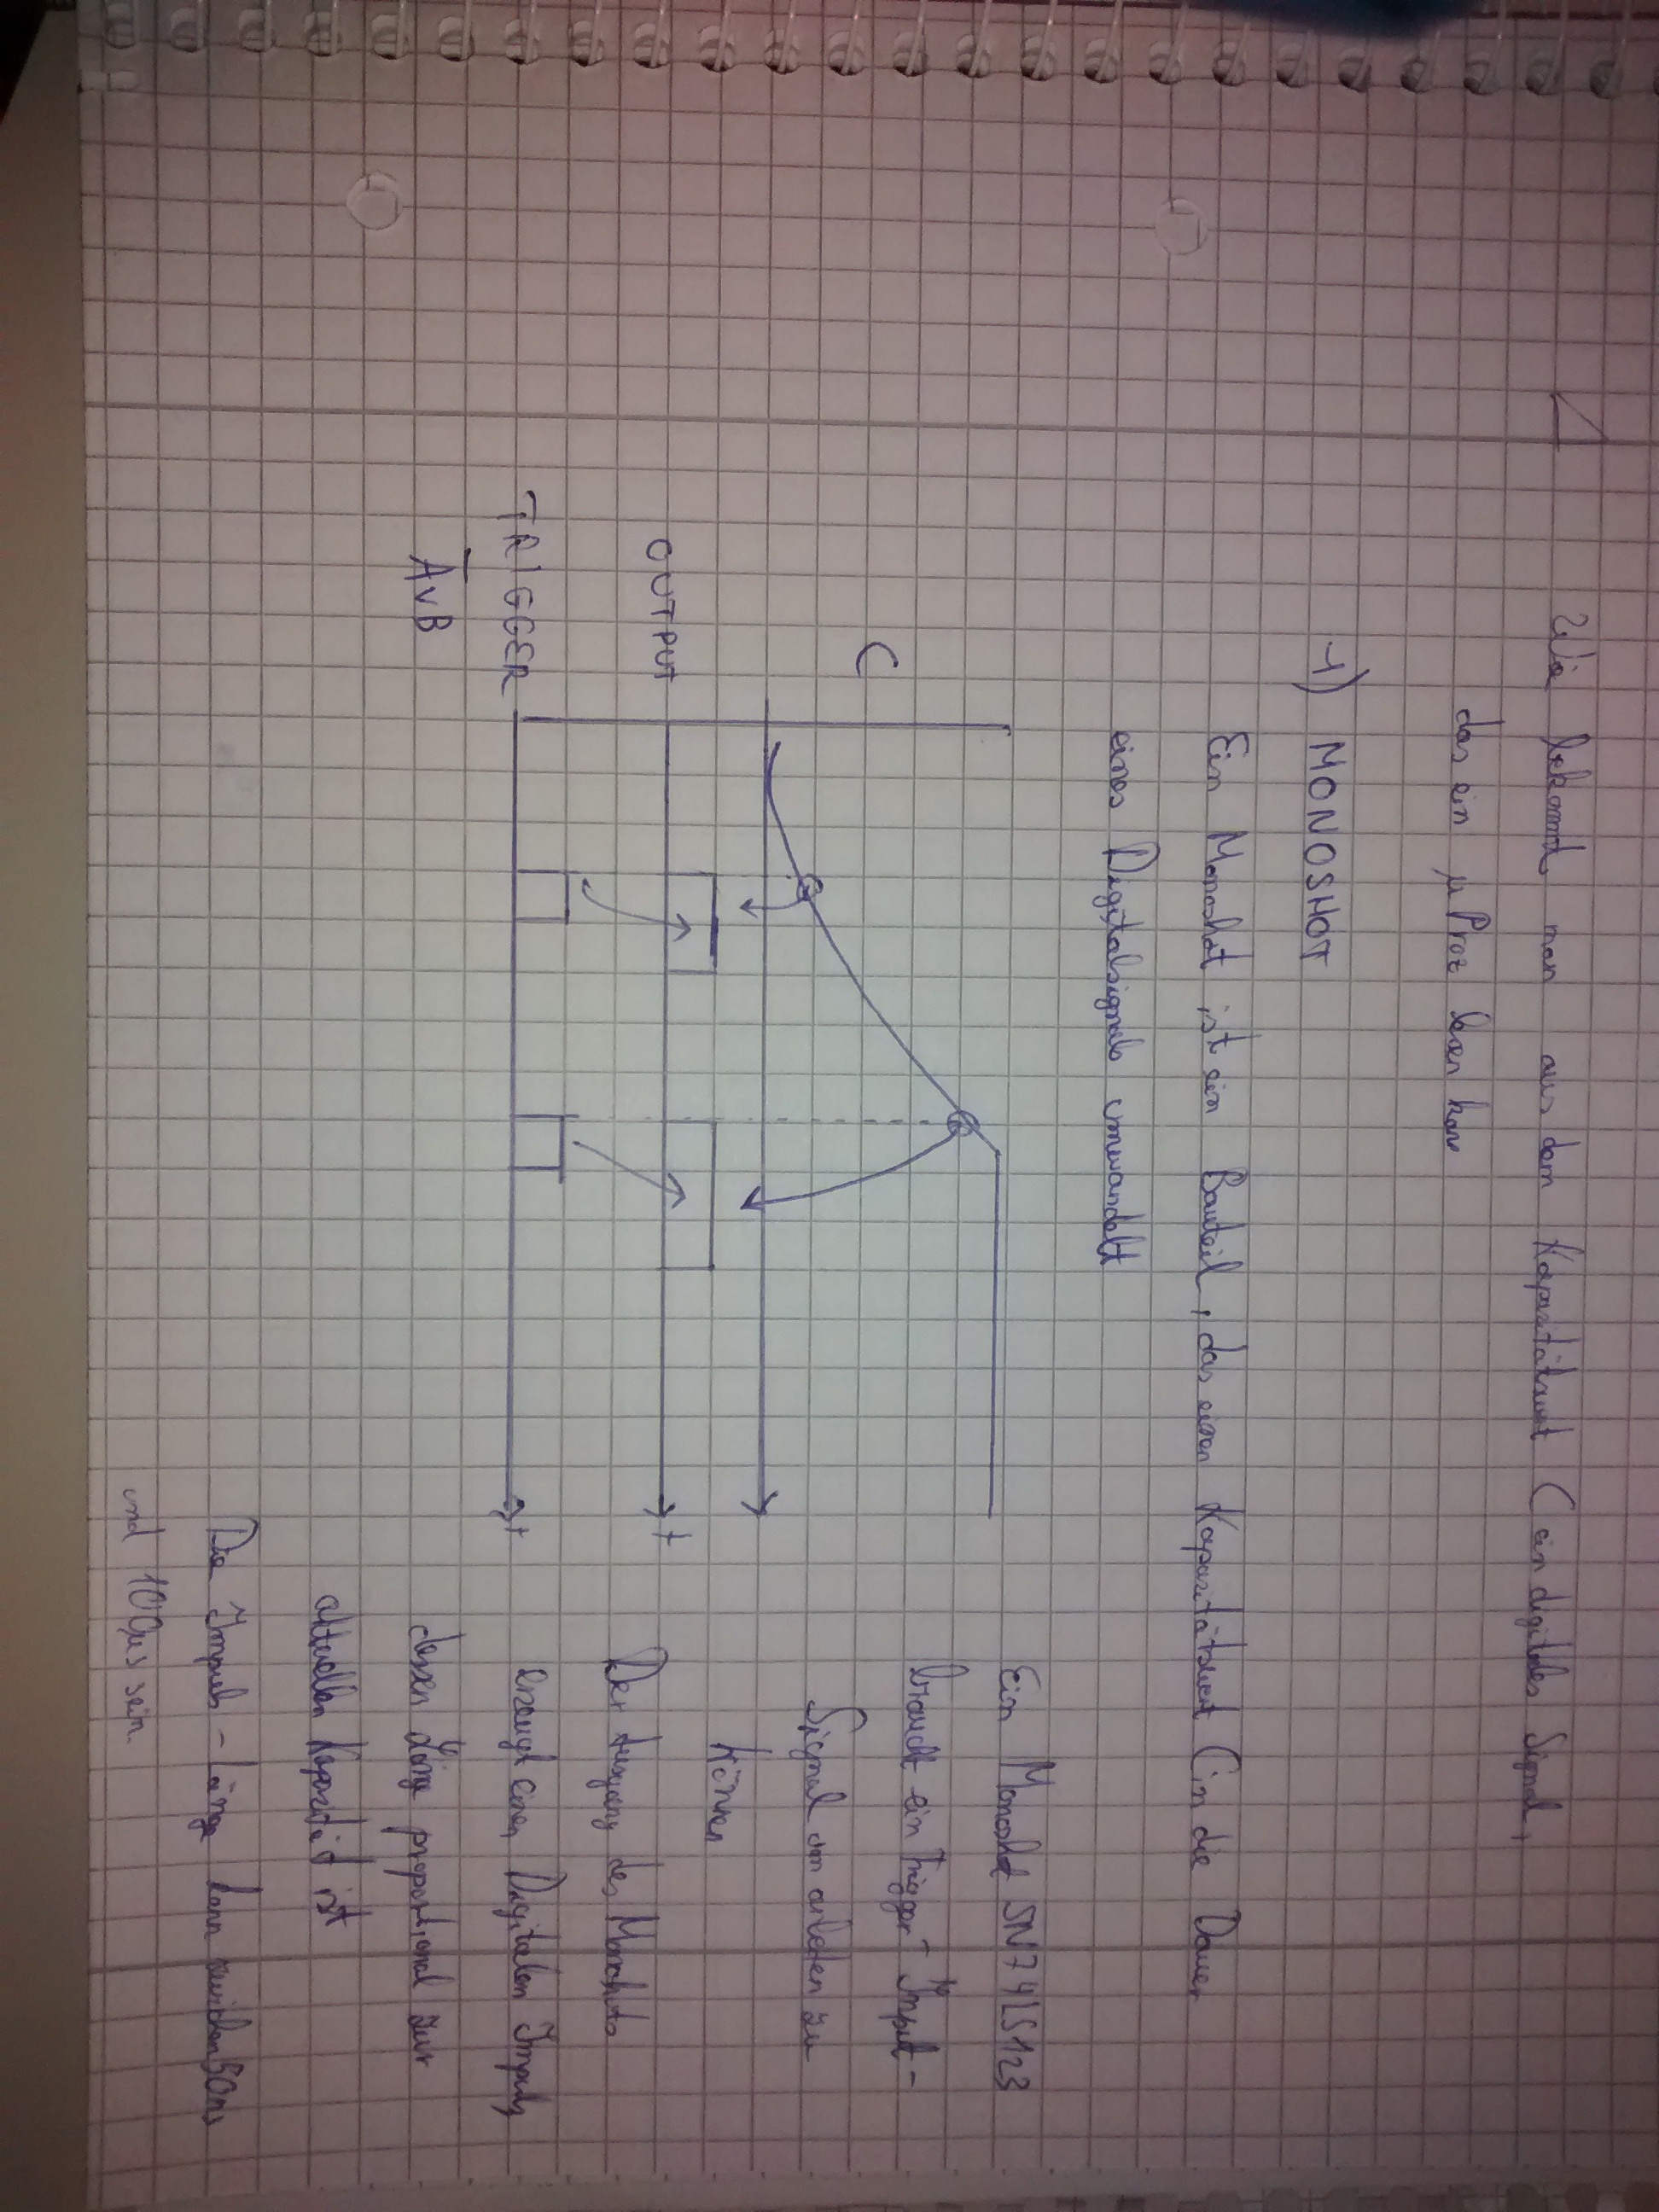 Wie bekommt man aus dem Kapazitätswert C ein digitales Signal,
das ein µProz lesen kann
1) MONOSHOT
Ein Monoshot ist ein Bauteil, das einen Kapazitätswert C in die Dauer
eines Digitalsignals umwandelt
C
OUTPUT
t
TRIGGER
t
A̅vB
Ein Monoshot SN74LS123
braucht ein Trigger-Input-
Signal um arbeiten zu
können
Der Ausgang des Monoshots
erzeugt einen Digitalen Impuls
dessen Länge proportional zur
aktuellen Kapazität ist
Die Impuls-Länge kann zwischen 50ns
und 100µs sein.